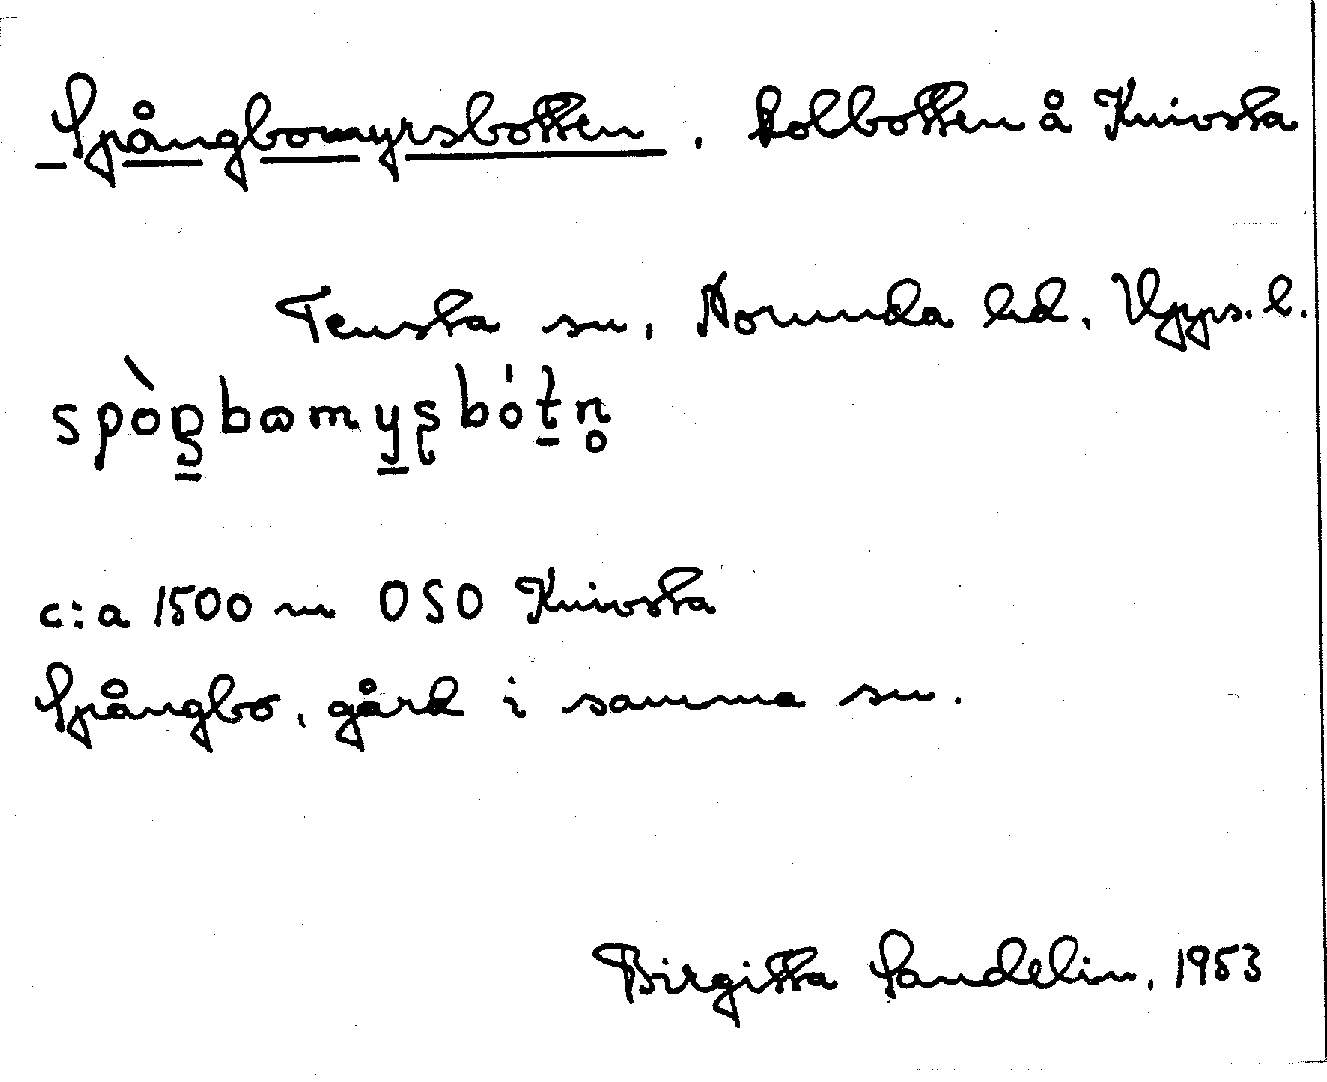 Spångbomyrsbotten, Kolbotten å Knivsta
Tensta sn, Norunda hd, Upps. l.
c:a 1500 m OSO Knivsta
Spångbo, gård i samma sn.
Birgitta Sandelin, 1953